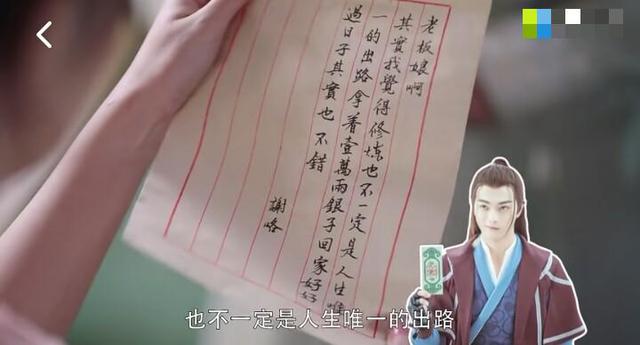 老板娘啊
其實我覺得修炼也不一定是人生唯
一的出路拿着壹萬兩銀子回家好好
過日子其實也不錯
謝咯
也不一定是人生唯一的出路